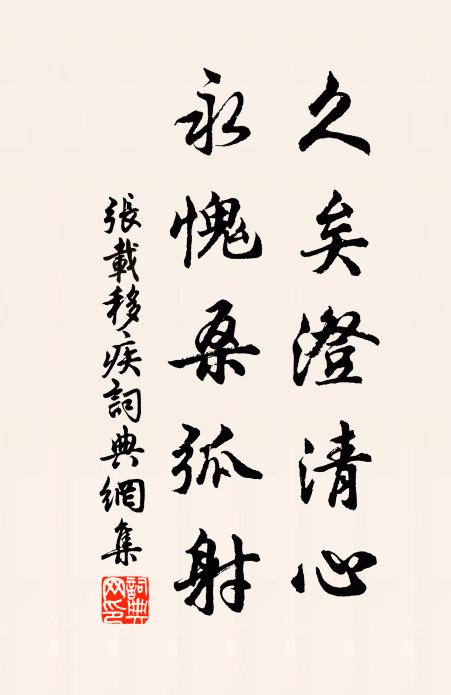 久矣澄清心
永愧桑弧射
張載移疾詞典網集
詞典网印